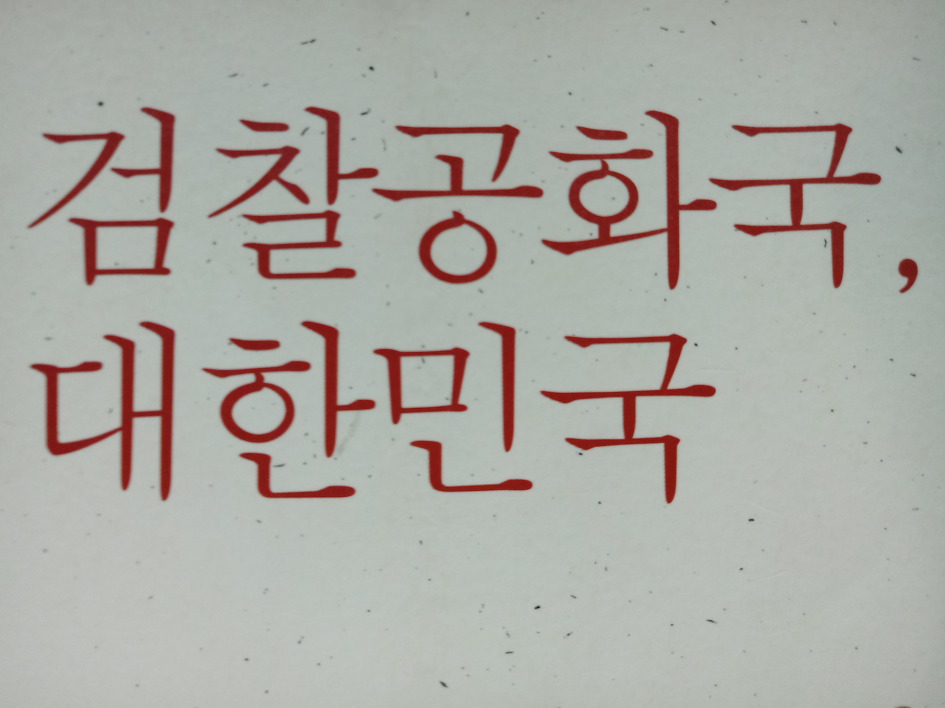 검찰공화국,
대한민국